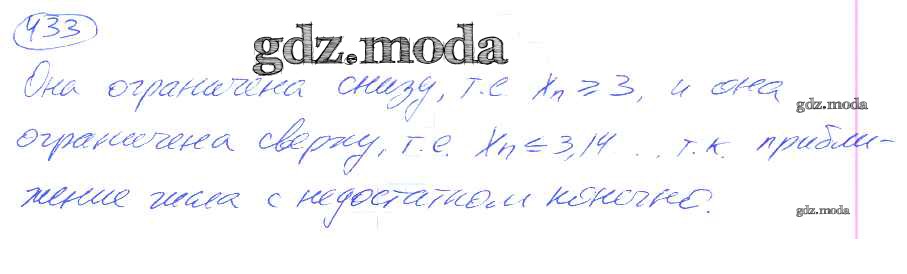 433
gdz.moda
Она ограничена снизу, т.е. Xₙ ≥ 3, и она
gdz.moda
ограничена сверху, т.е. Xₙ ≤ 3,14 ... т.к. прибли-
жение числа с недостатком конечно.
gdz.moda